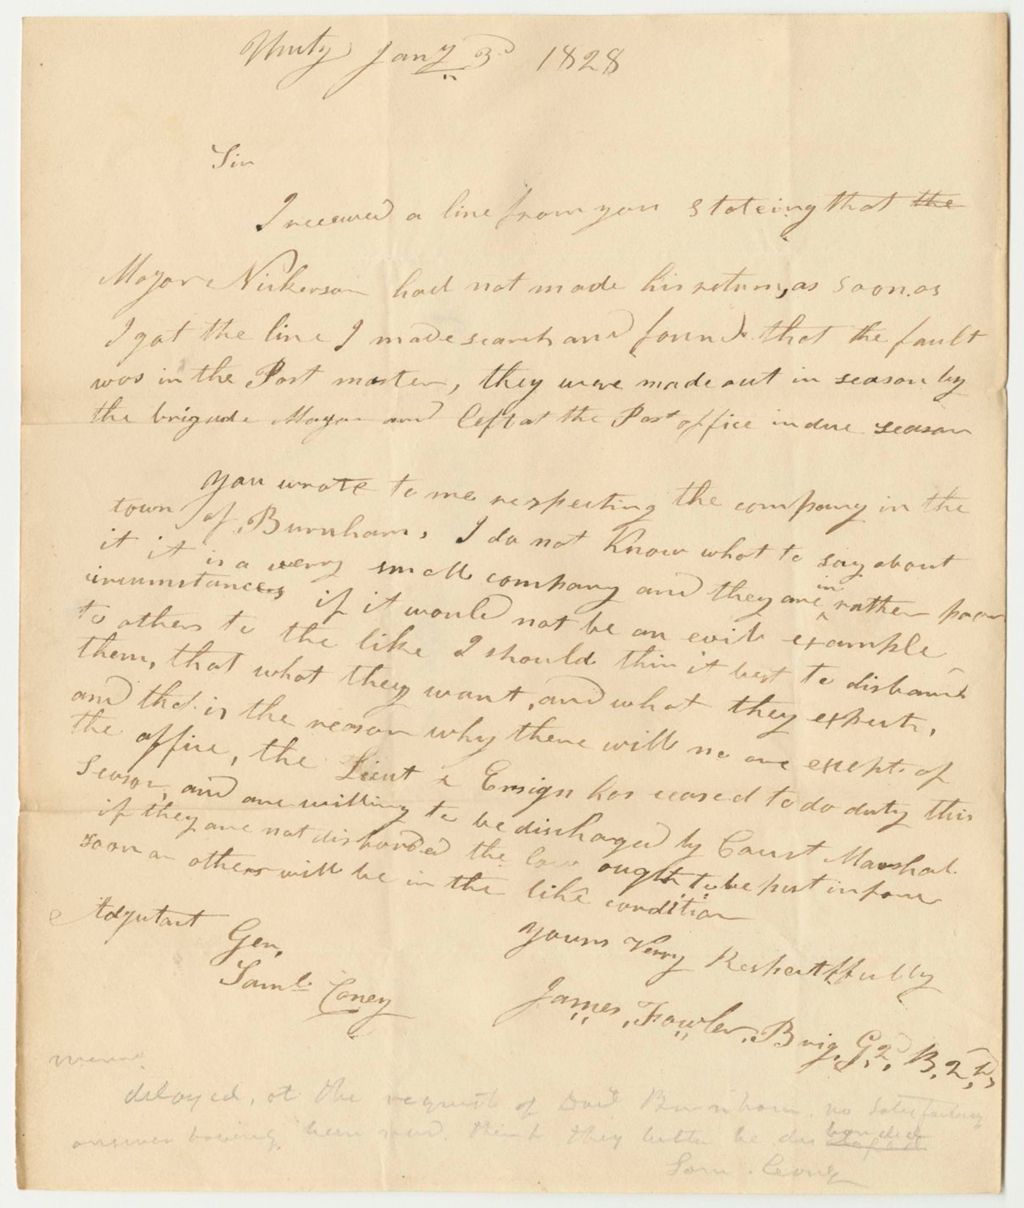 Unity Jany 3d 1828
Sir
I received a line from you stateing that the
Mayor Nickerson had not made his return, as soon as
I got the line I made search and found that the fault
was in the Post master, they were made out in season by
the brigade Mayor and left at the Post office in due season
you wrote to me respecting the company in the
town of Burnham, I do not know what to say about
it it is a verry small company and they are in rather poor
circumstances if it would not be an evil example
to others to the like I should thin it best to disband
them, that what they want, and what they expect,
and that is the reason why there will no one except of
the office, the Lieut & Ensign has ceased to do duty this
season, and are willing to be discharged by Court Marshal
if they are not disbanded the law ought to be put in force
soon as others will be in the like condition
yours verry Respectffully
Adjutant Gen,
Saml. Coney
James, Fowler, Brig, G, 2d, B, 2, D,
delayed, at the request of Burnham. no satisfactory
answer having been recd. think they better be disbanded
Sam. Coney